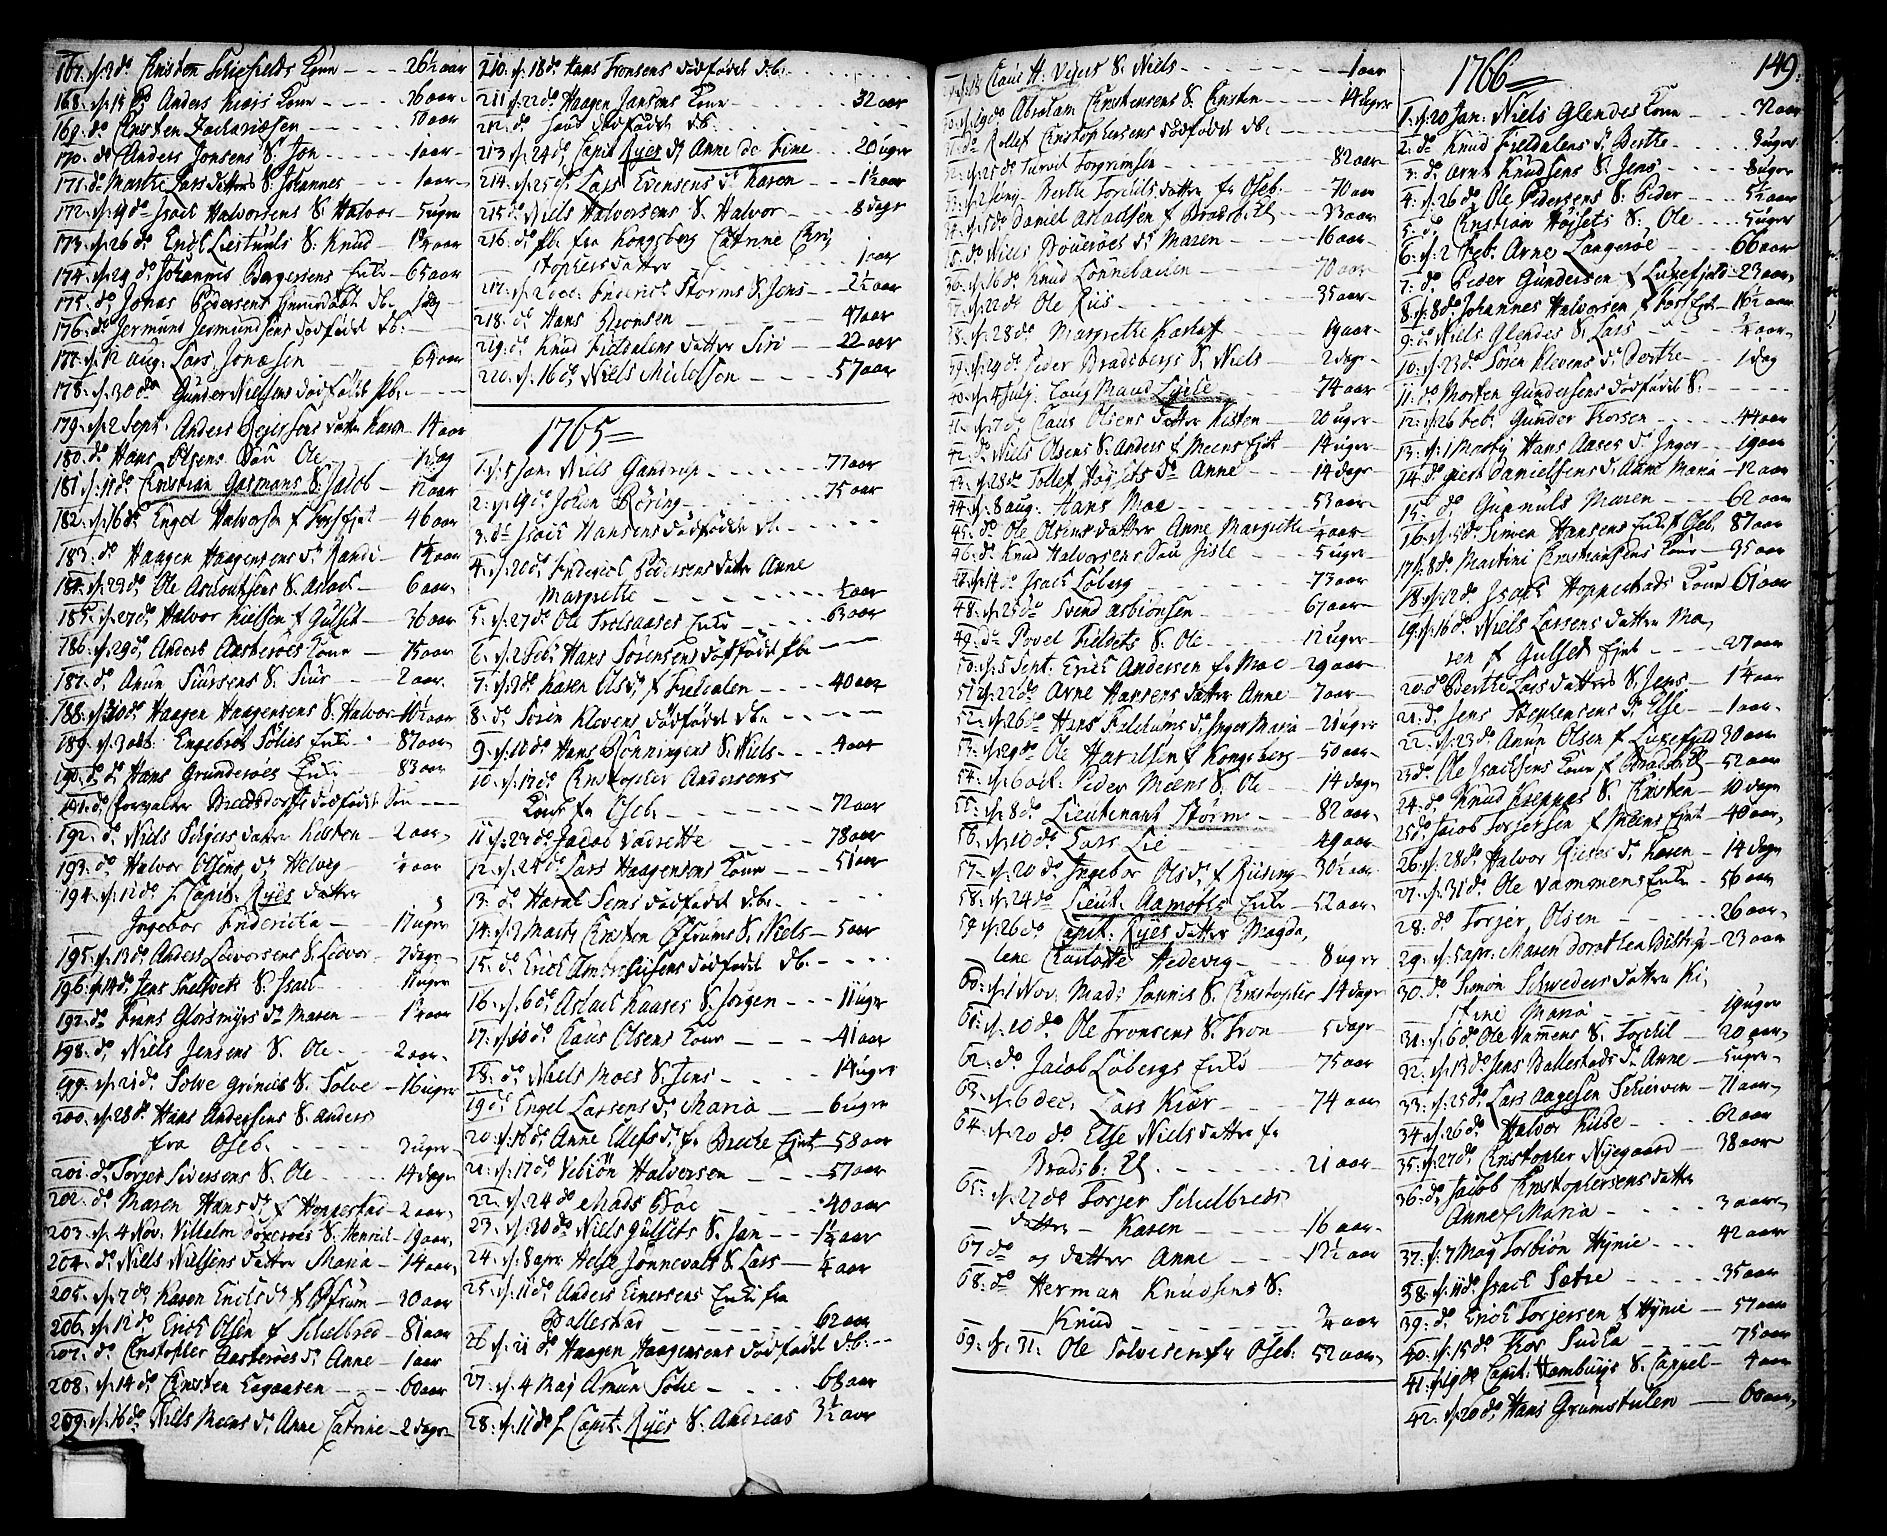 168. Anders Kiærs Kone - - - 36 aar
169. do Christen Zachariæsen - - - 50 aar
170. do Anders Jonsens S. Jon - - - 1 aar
171. do Marthe Lars datters S. Johannes - - 1 aar
172. d. 19 do Isach Halvorsens S. Halvor - 5 uger
173. d. 26 do S. Knud
174. d. 29 do Johannis Børgersens Enke - 65 aar
175. do Jonas Pedersens db. 1 dag
176. do Jermund Jermundsens dødfødt db.
177. d. 12 aug. Lars Jonæsen - - - 64 aar
178. d. 30 do Gunder Nielsens dødfødt
179. d. 2 Sept. Anders datter Karen - 14 aar
180. do Hans Olsens Søn Ole
181. d. 11 do Christian Gasmans S. Jacob - 12 aar
182. d. 16 do Engel Halvorsen - 46 aar
183. do Haagen Haagensens dr Randi
184. d. 22 do Ole S. - 6 aar
185. d. 27 do Halvor Nielsen f Gulset - 26 aar
186. d. 29 do Anders Aasterøes Kone - 75 aar
187. do Anun Siursens S. Siur - 2 aar
188. d. 30 do Haagen Haagensens S. Halvor
189. d. 3 oct. Engebret Solies Enke - 87 aar
190. do Hans Grunderøes Enke - 83 aar
191. do Forvalter Bredsdorfs dødfødt Søn
192. do Niels datter Kirsten - 2 aar
193. do Halvor Olsens dr Helvig - aar
194. d. 12 do S. Capit. Ryes datter
Ingebor Friderica - 17 uger
195. d. 13 do Anders Leworsens S. Ledvor - 7 dage
196. d. 14 do Jens S. Isach - 11 uger
192. do Frans Glosmyrs dr Maren
198. do Niels Jensens S. Ole - 2 aar
199. d. 21 do Solve Grinies S. Solve - 16 uger
200. d. 28 do Hans Andersens S. Anders
fra Oseb. - 3 uger
201. do Torger Siversens S. Ole - 14 dage
202. do Maren Hans dr f Hoppestad - 2 aar
203. d. 4 Nov. Vilhelm S. Henrich - 19 aar
204. do Niels Nielsens datter Maria - 14 aar
205. d. 7 do Karen Erichs dr f Øfrum - 20 aar
206. d. 12 do Erich Olsen f Schelbred - 81 aar
207. do Christopher Aasterøes dr Anne - 1 aar
208. d. 14 do Christen - 60 aar
209. d. 16 do Niels Meens dr Anne Catrine - 2 dage
210. d. 18 do Hans Tronsens dødfødt db.
211. d. 22 do Haagen Jansens Kone - 32 aar
212. do dødfødt db.
213. d. 24 do Capit. Ryes dr Anne do Fine - 20 uger
214. d. 25 do Lars Evensens dr Karen - 1½ aar
215. do Niels Halvorsens S. Halvor - 8 dage
216. do fra Kongsberg Catrine Chri
stophersdatter - 1 aar
217. d. 2 Dec. Friderich Storms S. Jens - 2½ aar
218. do Hans - 47 aar
219. do Knud Fieldalens datter Siri - 22 aar
220. d. 16 do Niels - 57 aar
1765
1. d. 5 Jan. Niels Gandrup - 77 aar
2. d. 19 do Johan Børing - 75 aar
3. do Isach Hansens dødfødt db.
4. d. 20 do Friderich Pedersens datter Anne
Margrette - ½ aar
5. d. 27 do Ole Trolsaases Enke - 63 aar
6. d. 2 Feb. Hans Sørensens dødfødt
7. d. 9 do Karen Ols dr f Fieldalen - 40 aar
8. do Søren Klevens dødfødt db.
9. d. 12 do Hans Rønningens S. Niels - 4 aar
10. d. 13 do Christopher Andersens
Kone fra Oseb. - 72 aar
11. d. 23 do Jacob - 78 aar
12. d. 25 do Lars Haagensens Kone - 51 aar
13. do Haral Sems dødfødt db.
14. d. 2 Marty Christen Øfrums S. Niels - 5 aar
15. do Erich dødfødt db.
16. d. 6 do Aslach Kaases S. Jørgen - 11 uger
17. d. 10 do Claus Olsens Kone - 41 aar
18. do Niels Moes S. Jens - 14 uger
19. do Engel Larsens dr Maria - 6 uger
20. d. 16 do Anne Ellefs dr fra Brecke Ejet - 58 aar
21. d. 17 do Vebiøn Halversen - 57 aar
22. d. 24 do Mads Boe - 40 aar
23. d. 30 do Niels Gulsets S. Jan - 1½ aar
24. d. 8 apr. Helje Jønnevals S. Lars - ¼ aar
25. d. 11 do Anders Einersens Enke fra
Ballestad - 62 aar
26. d. 21 do Haagen Haagensens dødfødt db.
27. d. 4 Maj Amun Solie - 68 aar
28. d. 11 do S. Capit. Ryes S. Andreas - 3½ aar
d. 18 Claus H. Vejers S. Niels - 1 aar
30. d. 19 do Abraham Christensens S. Christen - 14 uger
31. do Rollef Christophersens dødfødt db.
32. d. 25 do Torgrimsen - 82 aar
33. d. 2 Juny Berthe Torchilsdatter fr Oseb. - 70 aar
34. d. 5 do Daniel Aslachsen f Bradsb. Cl. - 33 aar
35. do Niels dr Maren - 16 aar
36. d. 16 do Knud Lønnebachen - 70 aar
37. d. 22 do Ole Riis - 35 aar
38. d. 28 do Margrethe - 19 aar
39. d. 29 do Peder Bradsbergs S. Niels - 2 dage
40. d. 4 July Maud - 74 aar
41. d. 7 do Claus Olsens datter Kirsten - 20 uger
42. do Niels Olsens S. Anders f Meens Ejet - 14 uger
43. d. 28 do Tollef Høysets dr Anne - 14 dage
44. d. 8 aug. Hans Moe - 53 aar
45. do Ole Olsens datter Anne Margrette - ½ aar
46. do Knud Halvorsens Søn Gisle - 5 uger
47. d. 14 do Isach Løberg - 73 aar
48. d. 25 do Svend Asbiønsen - 67 aar
49. do Povel S. Ole - 12 uger
50. d. 5 Sept. Erich Andersen fr Moe - 29 aar
51. d. 22 do Arne Hansens datter Anne - 7 aar
52. d. 26 do Hans dr Inger Maria - 21 uger
53. d. 29 do Ole f Kongsberg - 50 aar
54. d. 6 oct. Peder Meens S. Ole - 14 dage
55. d. 8 do Lieutenant Størm - 82 aar
56. d. 10 do Lars Lie - 49 aar
57. d. 20 do Ingebor Ols dr f Riising - 30½ aar
58. d. 24 do Lieut. Aamodts Enke - 52 aar
59. d. 26 do Capit. Ryes datter Magda,
lene Charlotte Hedevig - 8 uger
60. d. 1 Nov. Mads S. Christopher - 14 dage
61. d. 10 do Ole Tronsens S. Tron - 5 dage
62. do Jacob Løbergs Enke - 75 aar
63. d. 6 dec. Lars Kiær - 74 aar
64. d. 20 do Else Niels datter fr
Bradsb. Cl. - 21 aar
65. d. 27 do Torjer Schelbreds
datter Karen - 16 aar
67 do og datter Anne - 12½ aar
68. do Herman Knudsens S.
Knud - ¾ aar
69. d. 31. Ole Solvesen fr Oseb. 52 aar
149.
1766
1. d. 20 Jan. Niels Glendes Kone - 32 aar
2. do Knud Fieldalens dr Berthe - 3 uger
3. do Arne Knudsens S. Jens - 8 uger
4. d. 26 do Ole Pedersens S. Peder - 5½ aar
5. do Christian Høysets S. Ole - 5 uger
6. d. 2 Feb. Arne Langerøe - 66 aar
7. do Peder Gundersen f Luxefjeld - 23 aar
8. d. 8 do Johannes Halvorsen f Ejet - 16½ aar
9. do Niels Glendes S. Lars - ¼ aar
10. d. 23 do Søren Klevens dr Berthe - 1 dag
11. do Morten Gundersens dødfødt S.
12. d. 26 Feb. Gunder Korsen - 44 aar
13. d. 1 Marty Hans Aases dr Inger - 19 aar
14. do Danielsens dr Anne Maria - 12 aar
15. do Maren - 62 aar
16. d. 5 do Simen Hansens Enke f Oseb. 87 aar
17. d. 8 do Martini Christiansens Kone - 35 aar
18. d. 12 do Isach Hoppestads Kone 61 aar
19. d. 16 do Niels Larsens datter Ma,
ren f Gulset Ejet - 27 aar
20. do Berthe Lars datters S. Jens - 1¼ aar
21. do Jens Stephensens dr Else - 1 aar
22. d. 23 do Anun Olsen f Luxefjeld 30 aar
23. do Ole Isachsens Kone f Bradsb. Cl. - 52 aar
24. do Knud S. Christen - 10 dage
25. do Jacob Torjersen f Meens Ejet - 40 aar
26. d. 28 do Halvor Riises dr Karen - 14 dage
27. d. 31 do Ole Vammens Enke - 56 aar
28. do Torjer Olsen - 26 aar
29. d. 5 apr. Maren Dorothea - 23 aar
30. do Simon Schweders datter Ki,
stine Maria - 19 uger
31. d. 6 do Ole Vammens S. Torchil - 20 aar
32. d. 13 do Jens Ballestads dr Anne - 5 uger
33. d. 25 do Lars Aagesen Schierven - 71 aar
34. d. 26 do Halvor - 62 aar
35. d. 27 do Christopher Nyegaard - 38 aar
36. do Jacob Christophersens datter
Anne Maria - 3 aar
37. d. 7 May Torbiøn Hynie - 42 aar
38. d. 11 do Isach Sætre - 35 aar
39. do Erich Torjersen f Hynie - 57 aar
40. d. 15 do Thor - 75 aar
41. d. 19 do Capit. Hamburgs S. Cappel - 4 aar
42. d. 20 do Hans Grimstulen - 60 aar